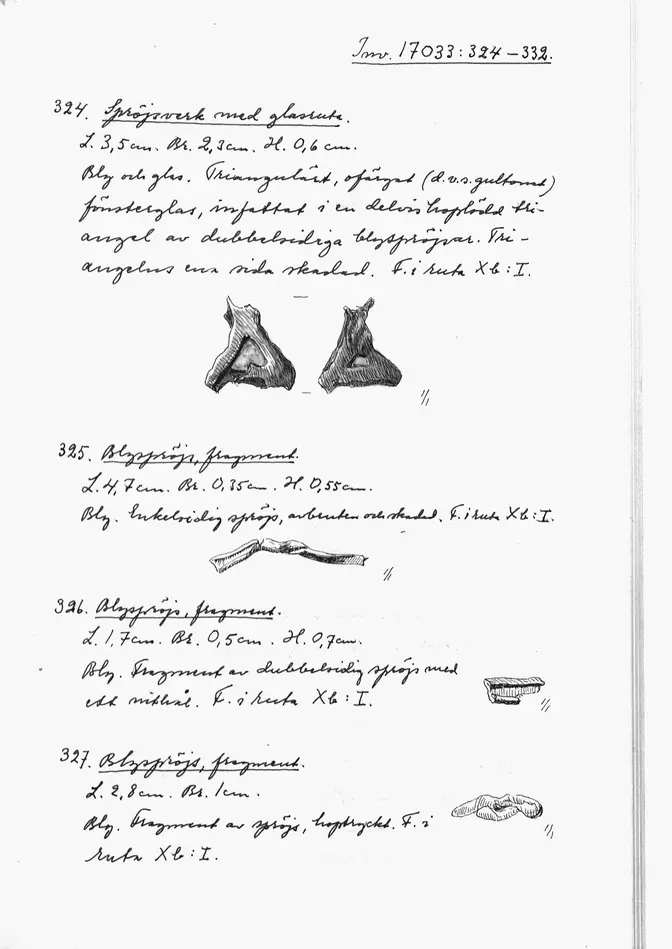 Inv. 17033:324–332.
324. Spröjsverk med glasruta.
L. 3,5 cm. Br. 2,3 cm. H. 0,6 cm.
Bly och glas. Triangulärt, ofärgat (d.v.s. gultonat)
fönsterglas, infattat i en delvis hoplödd tri-
angel av dubbelsidiga blyspröjsar. Tri-
angelns ena sida skadad. F. i ruta Xb:I.
1/1
325. Blyspröjs, fragment.
L. 4,7 cm. Br. 0,35 cm. H. 0,55 cm.
Bly. Enkelsidig spröjs, avbruten och skadad. F. i ruta Xb:I.
1/1
326. Blyspröjs, fragment.
L. 1,7 cm. Br. 0,5 cm. H. 0,7 cm.
Bly. Fragment av dubbelsidig spröjs med
ett nithål. F. i ruta Xb:I.
1/1
327. Blyspröjs, fragment.
L. 2,8 cm. Br. 1 cm.
Bly. Fragment av spröjs, hoptryckt. F. i
ruta Xb:I.
1/1